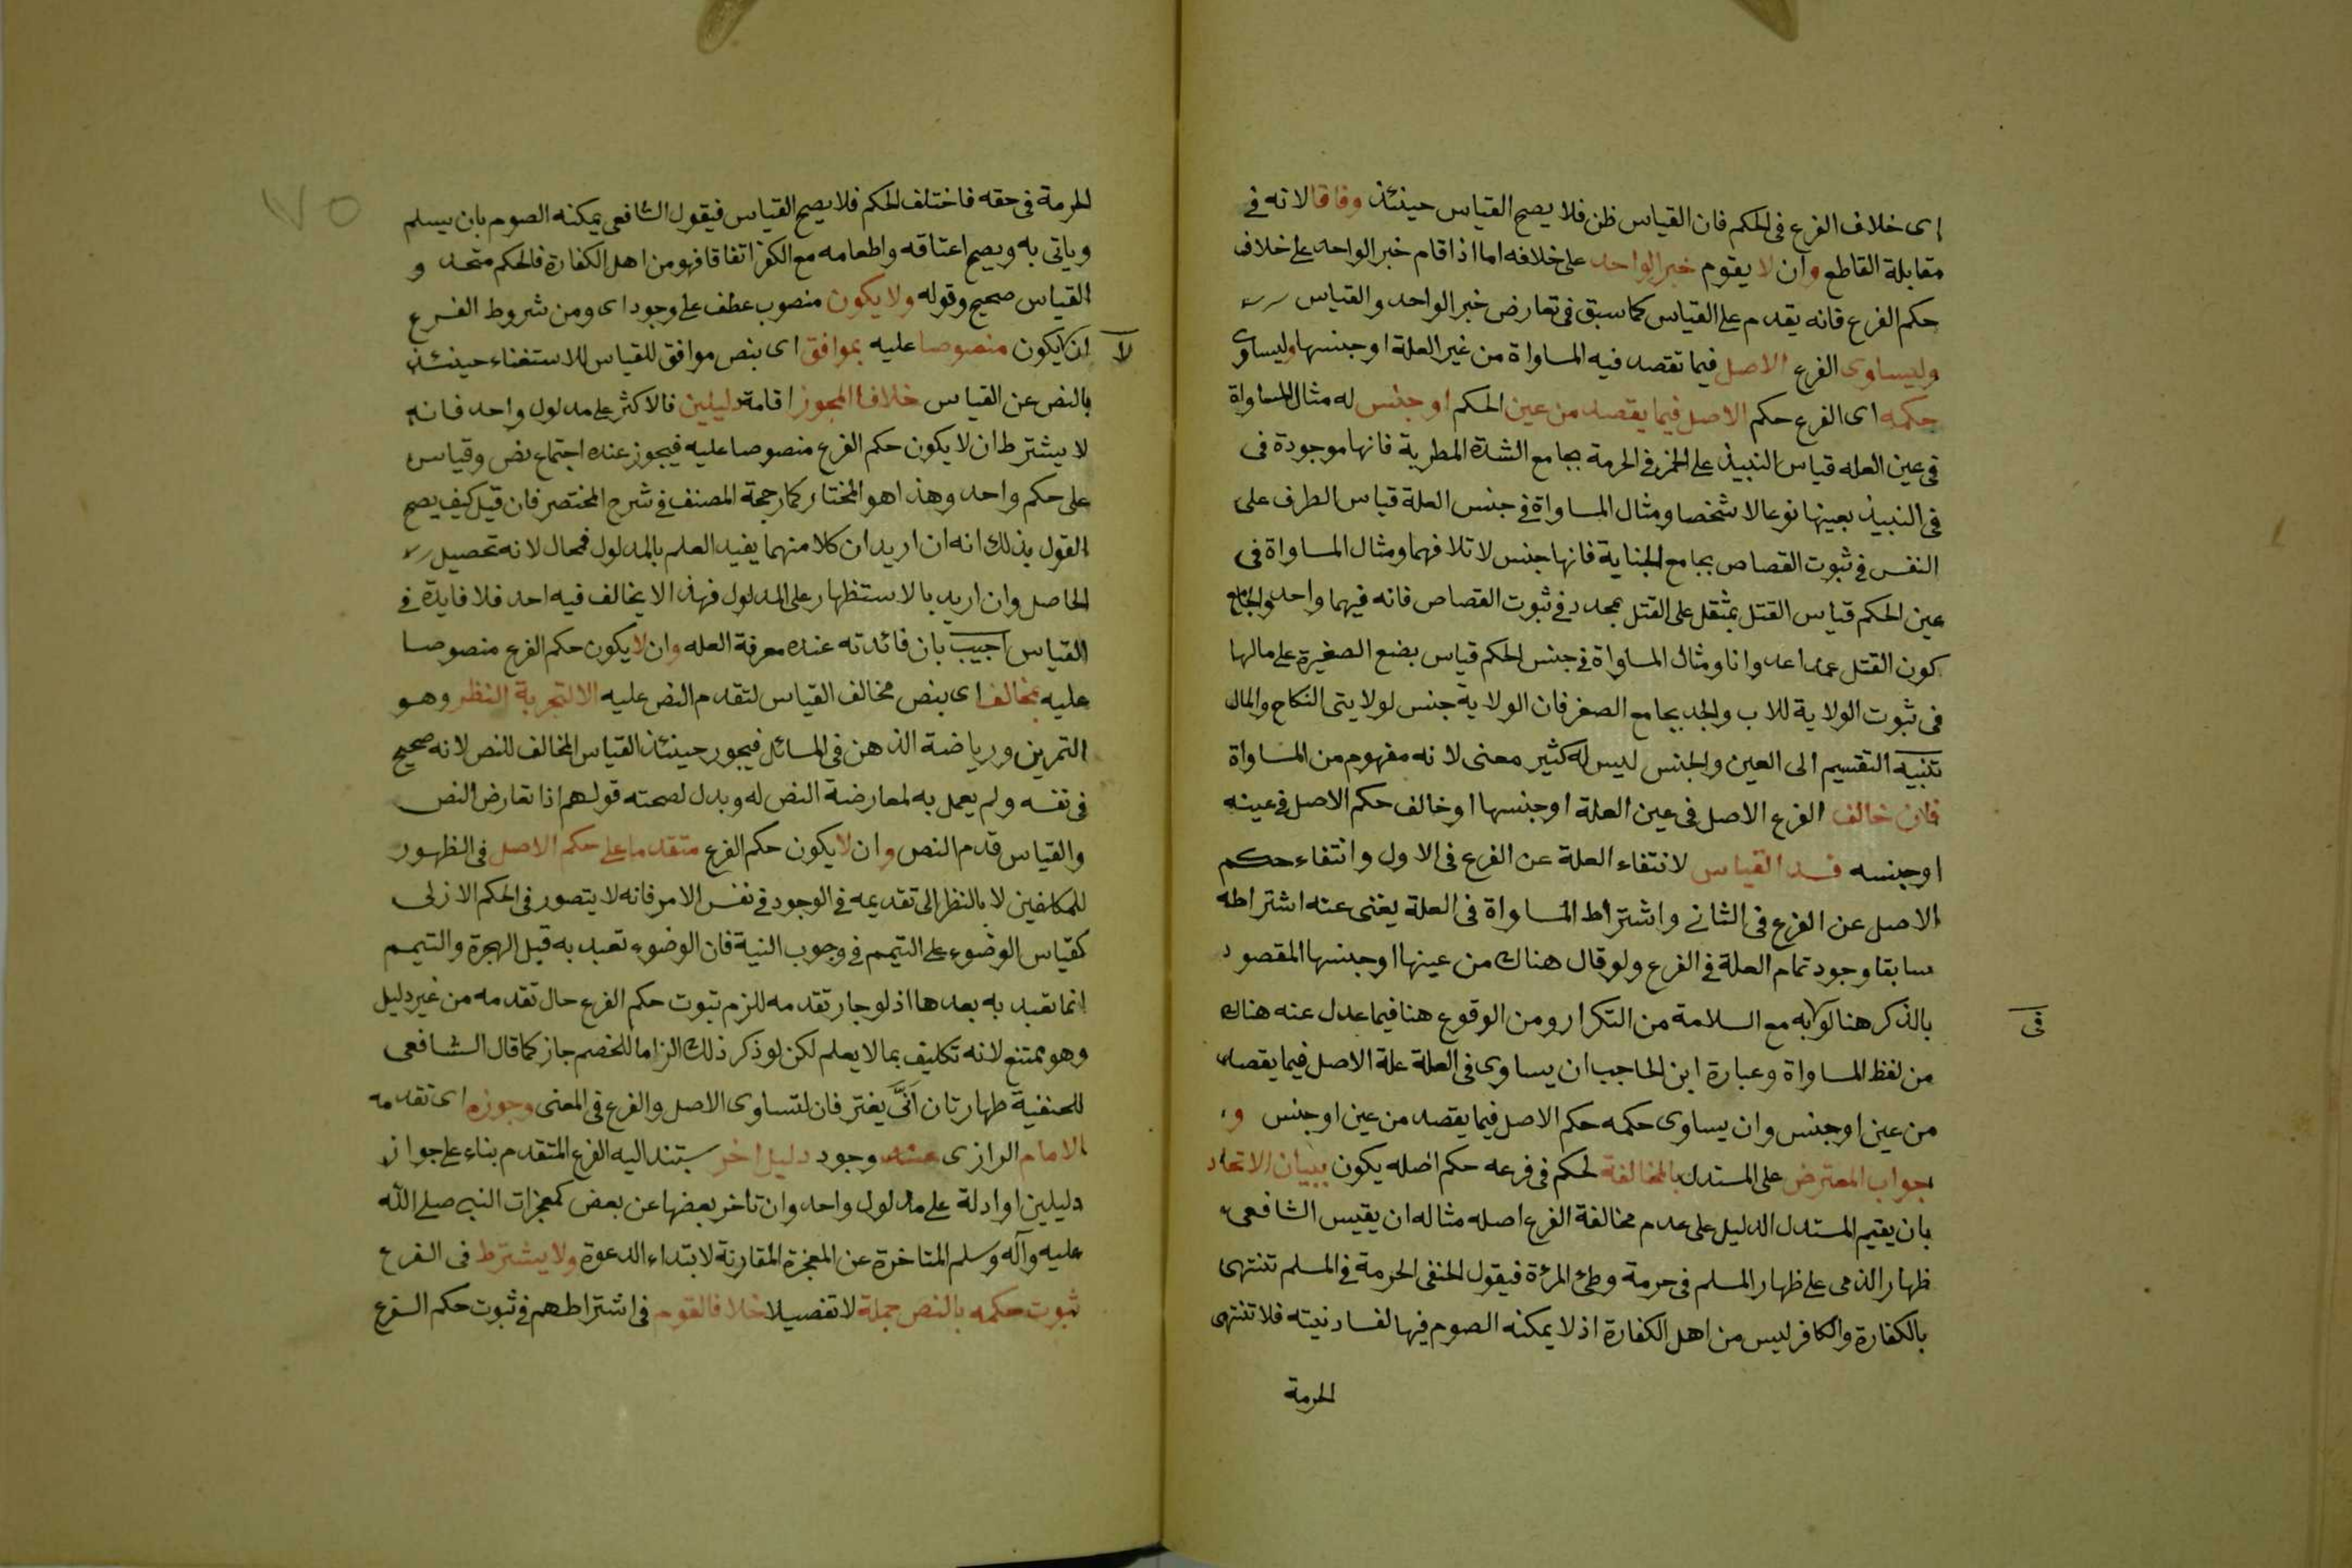 اى خلاف الفرع فى الحكم فان القياس ظن فلا يصح القياس حينئذ وفاقا لانه فى
مقابلة القاطع وان لا يقوم خبر الواحد على خلافه اما اذا قام خبر الواحد على خلاف
حكم الفرع فانه يقدم على القياس كما سبق فى تعارض خبر الواحد والقياس
وليساوى الفرع الاصل فيما تقصد فيه المساواة من غير العلة او جنسها وليساوى
حكمه اى الفرع حكم الاصل فيما يقصد من عين الحكم او جنس له مثال المساواة
فى عين العله قياس النبيذ على الخمر فى الحرمة بجامع الشدة المطربة فانها موجودة فى
فى النبيذ بعينها نوعا لا شخصا ومثال المساواة فى جنس العلة قياس الطرف على
النفس فى ثبوت القصاص بجامع الجناية فانها جنس لاتلافهما ومثال المساواة فى
عين الحكم قياس القتل بمثقل على القتل بمحدد فى ثبوت القصاص فانه فيهما واحد والجامع
كون القتل عمدا عدوانا ومثال المساواة فى جنس الحكم قياس بضع الصغيرة على مالها
فى ثبوت الولاية للاب والجد بجامع الصغر فان الولاية جنس لولايتى النكاح والمال
تنبيه التقسيم الى العين والجنس ليس له كثير معنى لانه مفهوم من المساواة
فان خالف الفرع الاصل فى عين العلة او جنسها او خالف حكم الاصل فى عينه
او جنسه فسد القياس لانتفاء العلة عن الفرع فى الاول وانتفاء حكم
الاصل عن الفرع فى الثانى واشتراط المساواة فى العلة يغنى عنه اشتراطه
سابقا وجود تمام العلة فى الفرع ولو قال هناك من عينها او جنسها المقصود
بالذكر هنا لو به مع السلامة من التكرار ومن الوقوع هنا فيما عدل عنه هناك
فى
من لفظ المساواة وعبارة ابن الحاجب ان يساوى فى العلة علة الاصل فيما يقصد
من عين او جنس وان يساوى حكمه حكم الاصل فيما يقصد من عين او جنس و
جواب المعترض على المستدل بالمخالفة لحكم فى فرعه حكم اصله يكون ببيان الاتحاد
بان يقيم المستدل الدليل على عدم مخالفة الفرع اصله مثاله ان يقيس الشافعى
ظهار الذمى على ظهار المسلم فى حرمة وطئ المرئة فيقول الحنفى الحرمة فى المسلم تنتهى
بالكفارة والكافر ليس من اهل الكفارة اذ لا يمكنه الصوم فيها لفساد نيته فلا تنتهى
الحرمة
٧٥
الحرمة فى حقه فاختلف الحكم فلا يصح القياس فيقول الشافعى يمكنه الصوم بان يسلم
وياتى به ويصح اعتاقه واطعامه مع الكفر اتفاقا فهو من اهل الكفارة فالحكم متحد و
القياس صحيح وقوله ولا يكون منصوب عطف على وجود اى ومن شروط الفرع
لا
ان يكون منصوصا عليه بموافق اى بنص موافق للقياس للاستغناء حينئذ
بالنص عن القياس خلافا لمجوز اقامة دليلين فالاكثر على مدلول واحد فانه
لا يشترط ان لا يكون حكم الفرع منصوصا عليه فيجوز عنده اجتماع نص وقياس
على حكم واحد وهذا هو المختار كما رجحه المصنف فى شرح المختصر فان قيل كيف يصح
القول بذلك انه ان اريد ان كلا منهما يفيد العلم بالمدلول فمحال لانه تحصيل
الحاصل وان اريد بالاستظهار على المدلول فهذا لا يخالف فيه احد فلا فايدة فى
القياس اجيب بان فائدته عنده معرفة العله وان لا يكون حكم الفرع منصوصا
عليه بمخالف اى بنص مخالف القياس لتقدم النص عليه الا لتجربة النظر وهو
التمرين ورياضة الذهن فى المسائل فيجوز حينئذ القياس المخالف للنص لانه صحيح
فى نفسه ولم يعمل به لمعارضة النص له ويدل لصحته قولهم اذا تعارض النص
والقياس قدم النص وان لا يكون حكم الفرع متقدما على حكم الاصل فى الظهور
للمكلفين لا بالنظر الى تقديمه فى الوجود فى نفس الامر فانه لا يتصور فى الحكم الازلى
كقياس الوضوء على التيمم فى وجوب النية فان الوضوء تعبد به قبل الهجرة والتيمم
انما تعبد به بعدها اذ لو جاز تقدمه للزم ثبوت حكم الفرع حال تقدمه من غير دليل
وهو ممتنع لانه تكليف بما لا يعلم لكن لو ذكر ذلك الزاما للخصم جاز كما قال الشافعى
للحنفية طهارتان اَنَّى يفترقان لتساوى الاصل والفرع فى المعنى وجوزه اى تقدمه
الامام الرازى عند وجود دليل اخر يستند اليه الفرع المتقدم بناء على جواز
دليلين او ادلة على مدلول واحد وان تاخر بعضها عن بعض كمعجزات النبى صلى الله
عليه وآله وسلم المتاخرة عن المعجزة المقارنة لابتداء الدعوة ولا يشترط فى الفرع
ثبوت حكمه بالنص جملة لا تفصيلا خلافا لقوم فى اشتراطهم فى ثبوت حكم الفرع